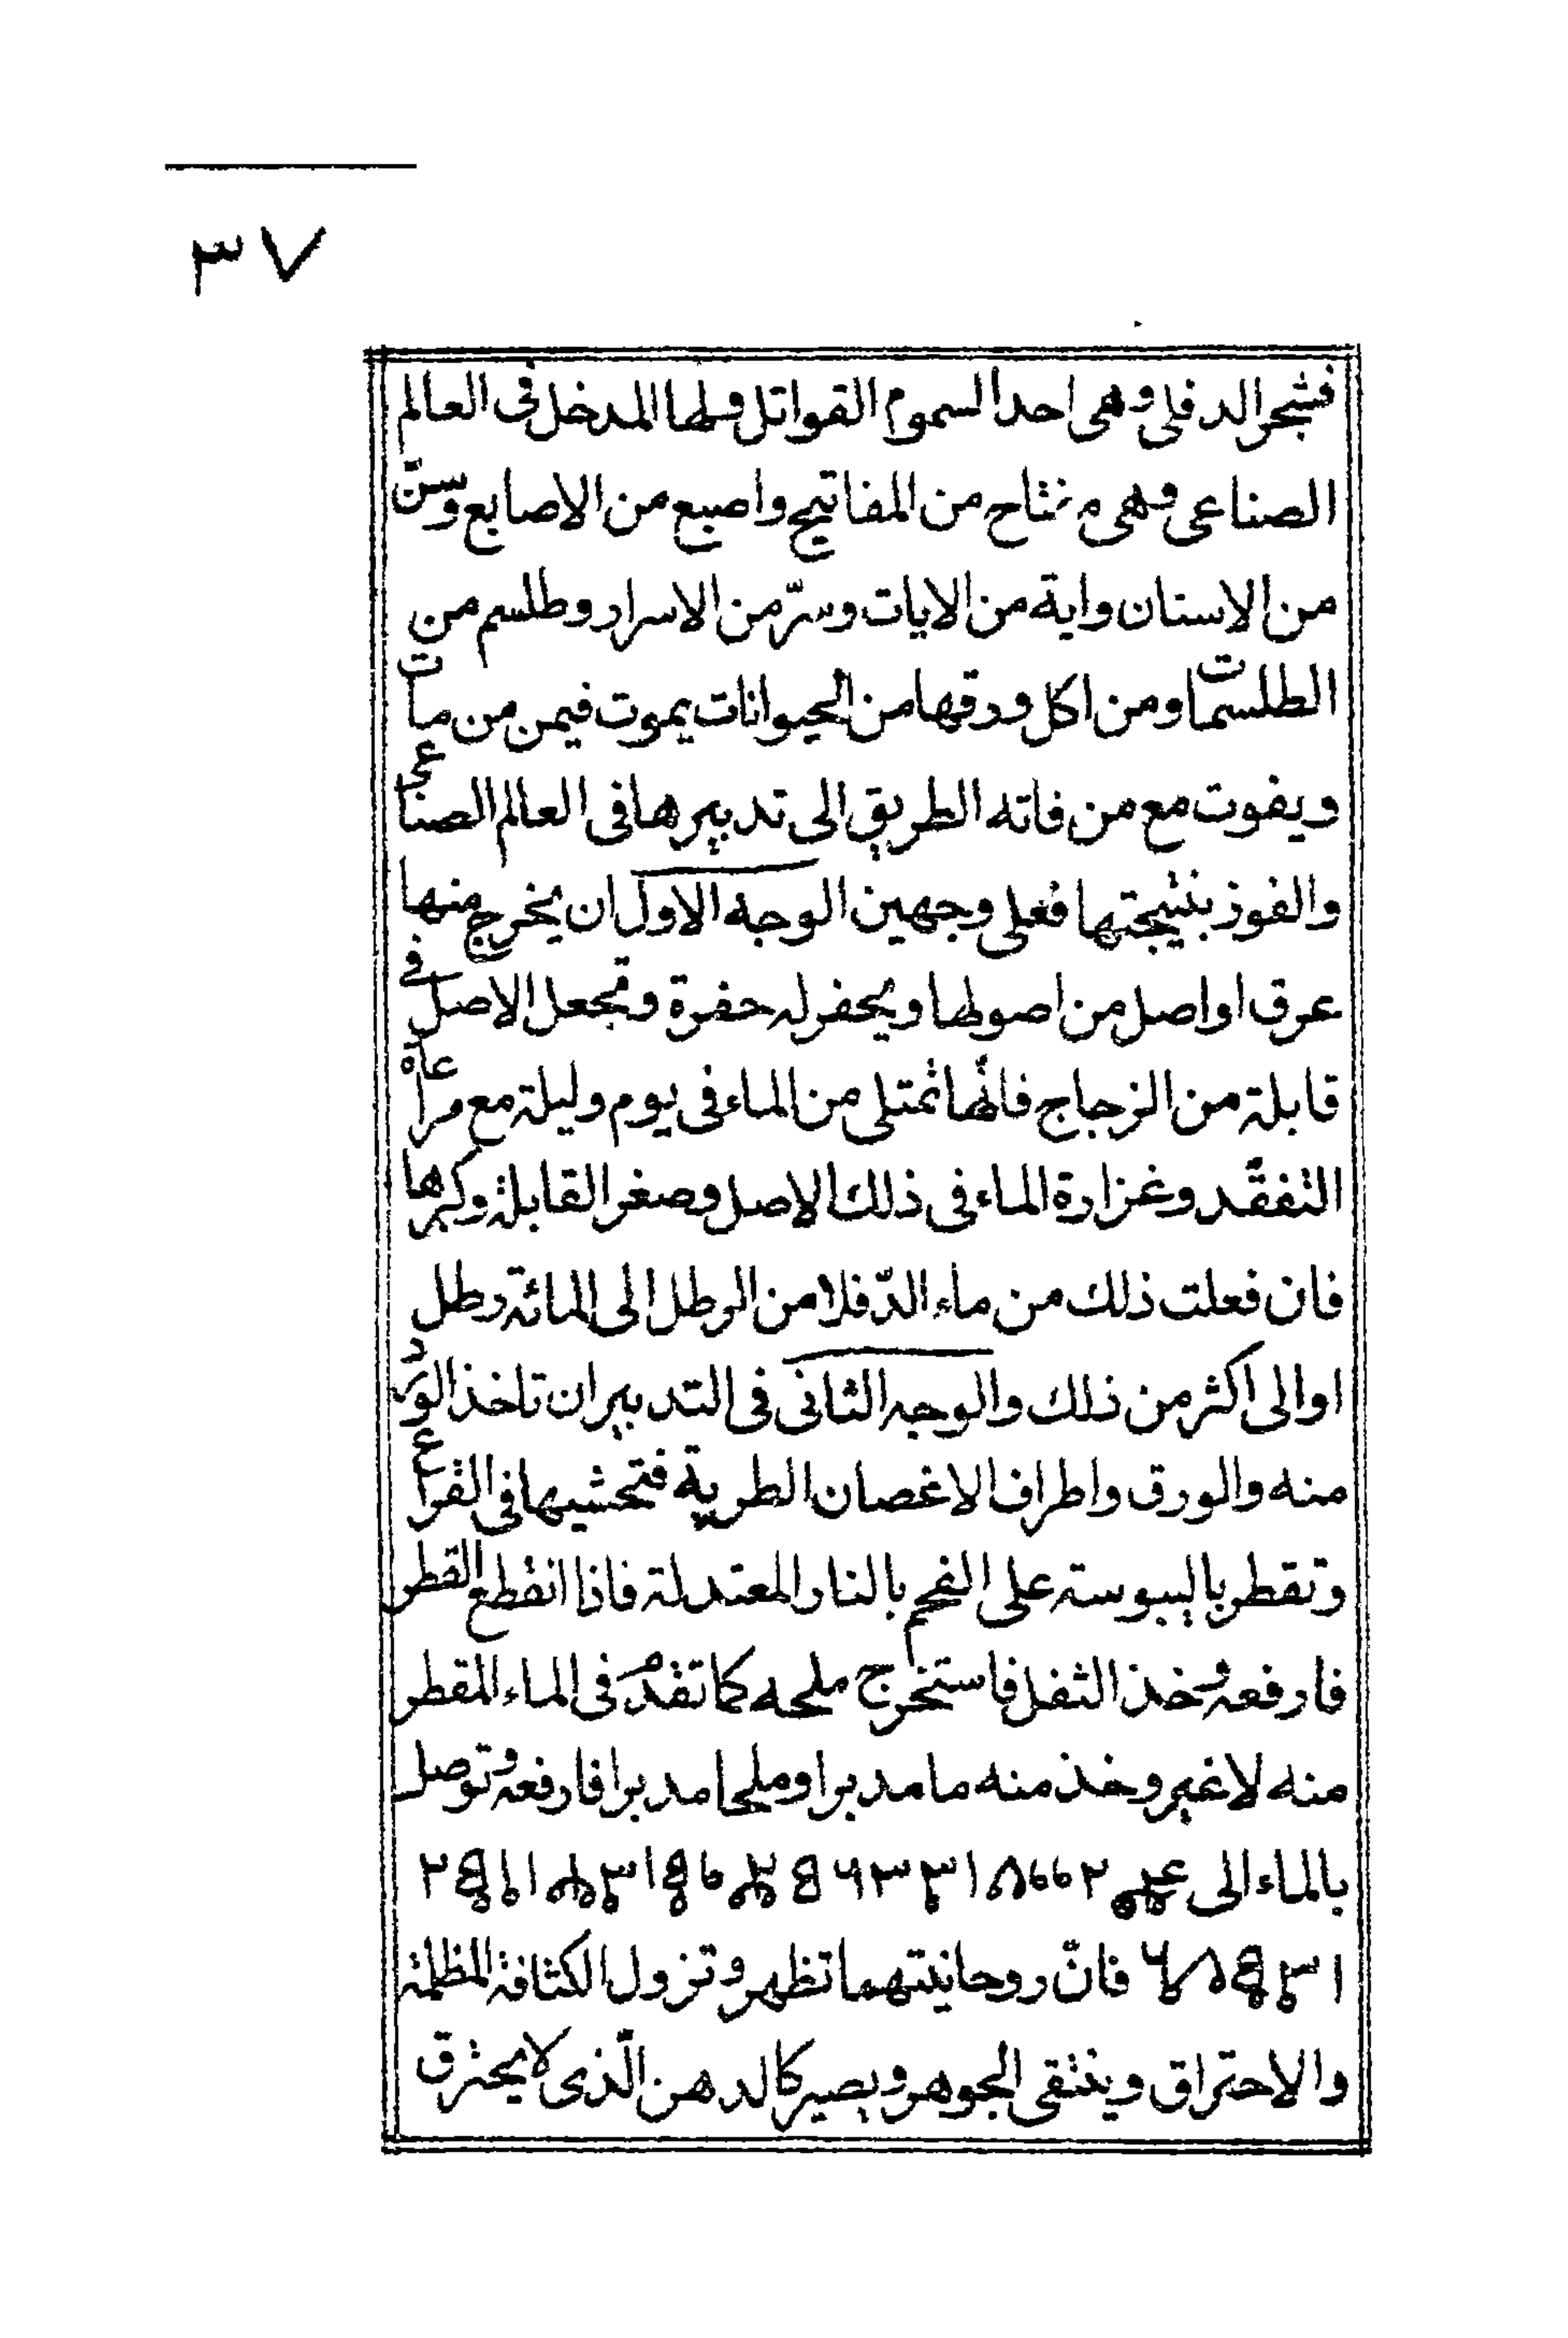 ٣٧
فشجر الدفلى وهى احد السموم القواتل ولها المدخل فى العالم
الصناعى وهى مفتاح من المفاتيح واصبع من الاصابع وسنّ
من الاسنان واية من الايات وسرّ من الاسرار وطلسم من
الطلسمات ومن اكل ورقها من الحيوانات يموت فيمن من مات
ويفوت مع من فاته الطريق الى تدبيرها فى العالم الصناعى
والفوز بنتيجتها فعلى وجهين الوجه الاول ان يخرج منها
عرق او اصل من اصولها ويحفر له حفرة وتجعل الاصل في
قابلة من الزجاج فانّها تمتلى من الماء فى يوم وليلة مع مراعاة
التفقّد وغزارة الماء فى ذلك الاصل وصغر القابلة وكبرها
فان فعلت ذلك من ماء الدّفلا من الرطل الى المائة رطل
او الى اكثر من ذلك والوجه الثانى فى التدبير ان تاخذ الورد
منه والورق واطراف الاغصان الطرية فتحشيها فى القراع
وتقطر باليبوسة على الفحم بالنار المعتدلة فاذا انقطع القطر
فارفعه وخذ الثفل فاستخرج ملحه كما تقدّم فى الماء المقطر
منه لا غير وخذ منه ما مدبرا وملحا مدبرا فارفعه وتوصل
بالماء الى
فانّ روحانيتهما تظهر وتزول الكثافة المظلمة
والاحتراق وينتقى الجوهر ويصير كالدهن الّذى لا يحترق